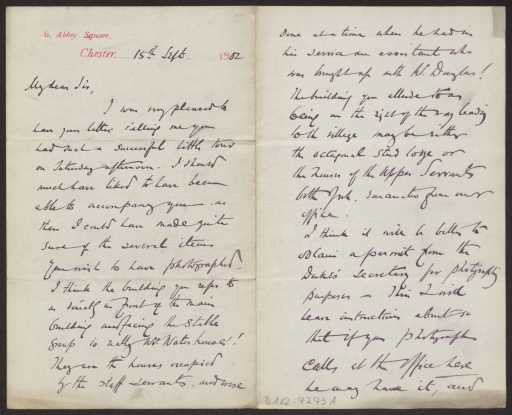 6, Abbey Square,
Chester, 15th Sept. 1902
My dear Sir,
I was very pleased to
have your letter telling me you
had such a successful little tour
on Saturday afternoon. I should
much have liked to have been
able to accompany you as
then I could have made quite
sure of the several items
you wish to have photographed.
I think the building you refer to
as in front of the main
building and facing the Stable
group is really Mr Waterhouse's!
They are the houses occupied
by the staff servants, and were
done at a time when he had in
his service an assistant who
was brought up with Mr Douglas!
The building you allude to as
being on the right of the way leading
to the village may be either
the octagonal Stud lodge or
the houses of the Upper Servants
both of which from our
office.
I think it will be better to
obtain a permit from the
Duke's Secretary for photography
purposes – this I will
leave instructions about so
that if your photographer
calls at the office here
he may have it, and